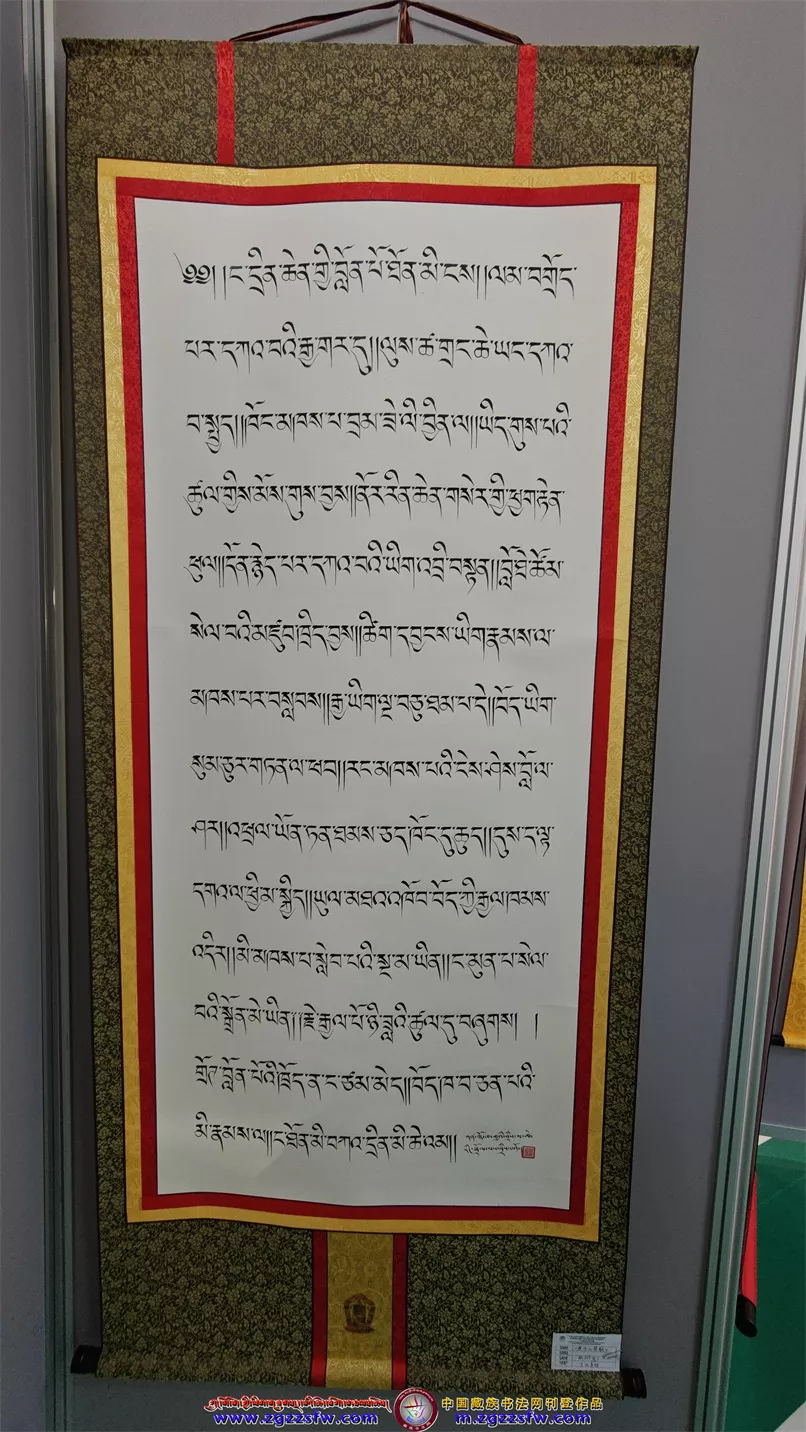 ༄༅། །ང་དྲིན་ཆེན་གྱི་བློན་པོ་ཐོན་མི་ངས། །ལམ་བགྲོད་
པར་དཀའ་བའི་རྒྱ་གར་དུ། །ལུས་ཚ་གྲང་ཆེ་ཡང་དཀའ་
བ་སྤྱད། །ཁོང་མཁས་པ་བྲམ་ཟེ་ལི་བྱིན་ལ། །ཡིད་གུས་པའི་
ཚུལ་གྱིས་མོས་གུས་བྱས། །ནོར་རིན་ཆེན་གསེར་གྱི་ཕྱག་རྟེན་
ཕུལ། །དོན་རྙེད་པར་དཀའ་བའི་ཡིག་འབྲི་བསྟན། །བློ་ཐེ་ཚོམ་
སེལ་བའི་མཛུབ་ཁྲིད་བྱས། །ཚིག་དབྱངས་ཡིག་རྣམས་ལ་
མཁས་པར་བསླབས། །རྒྱ་ཡིག་ལྔ་བཅུ་ཐམ་པ་དེ། །བོད་ཡིག་
སུམ་ཅུར་གཏན་ལ་ཕབ། །རང་མཁས་པའི་ངེས་ཤེས་བློ་ལ་
ཤར། །འཕྲལ་ཡོན་ཏན་ཐམས་ཅད་ཁོང་དུ་ཆུད། །དུས་ད་ལྟ་
དགའ་ལ་ཕྱི་མ་སྐྱིད། །ཡུལ་མཐའ་འཁོབ་བོད་ཀྱི་རྒྱལ་ཁམས་
འདིར། །མི་མཁས་པ་སླེབ་པའི་སྔ་མ་ཡིན། །ང་མུན་པ་སེལ་
བའི་སྒྲོན་མེ་ཡིན། །རྗེ་རྒྱལ་པོ་ཉི་ཟླའི་ཚུལ་དུ་བཞུགས། །
གྲོཊ་བློན་པོའི་ཁྲོད་ན་ང་ཙམ་མེད། །བོད་ཁ་བ་ཅན་པའི་
མི་རྣམས་ལ། །ང་ཐོན་མི་བཀའ་དྲིན་མི་ཆེ་འམ། །
中国藏族书法网刊登作品
www.zgzzsfw.com
m.zgzzsfw.com